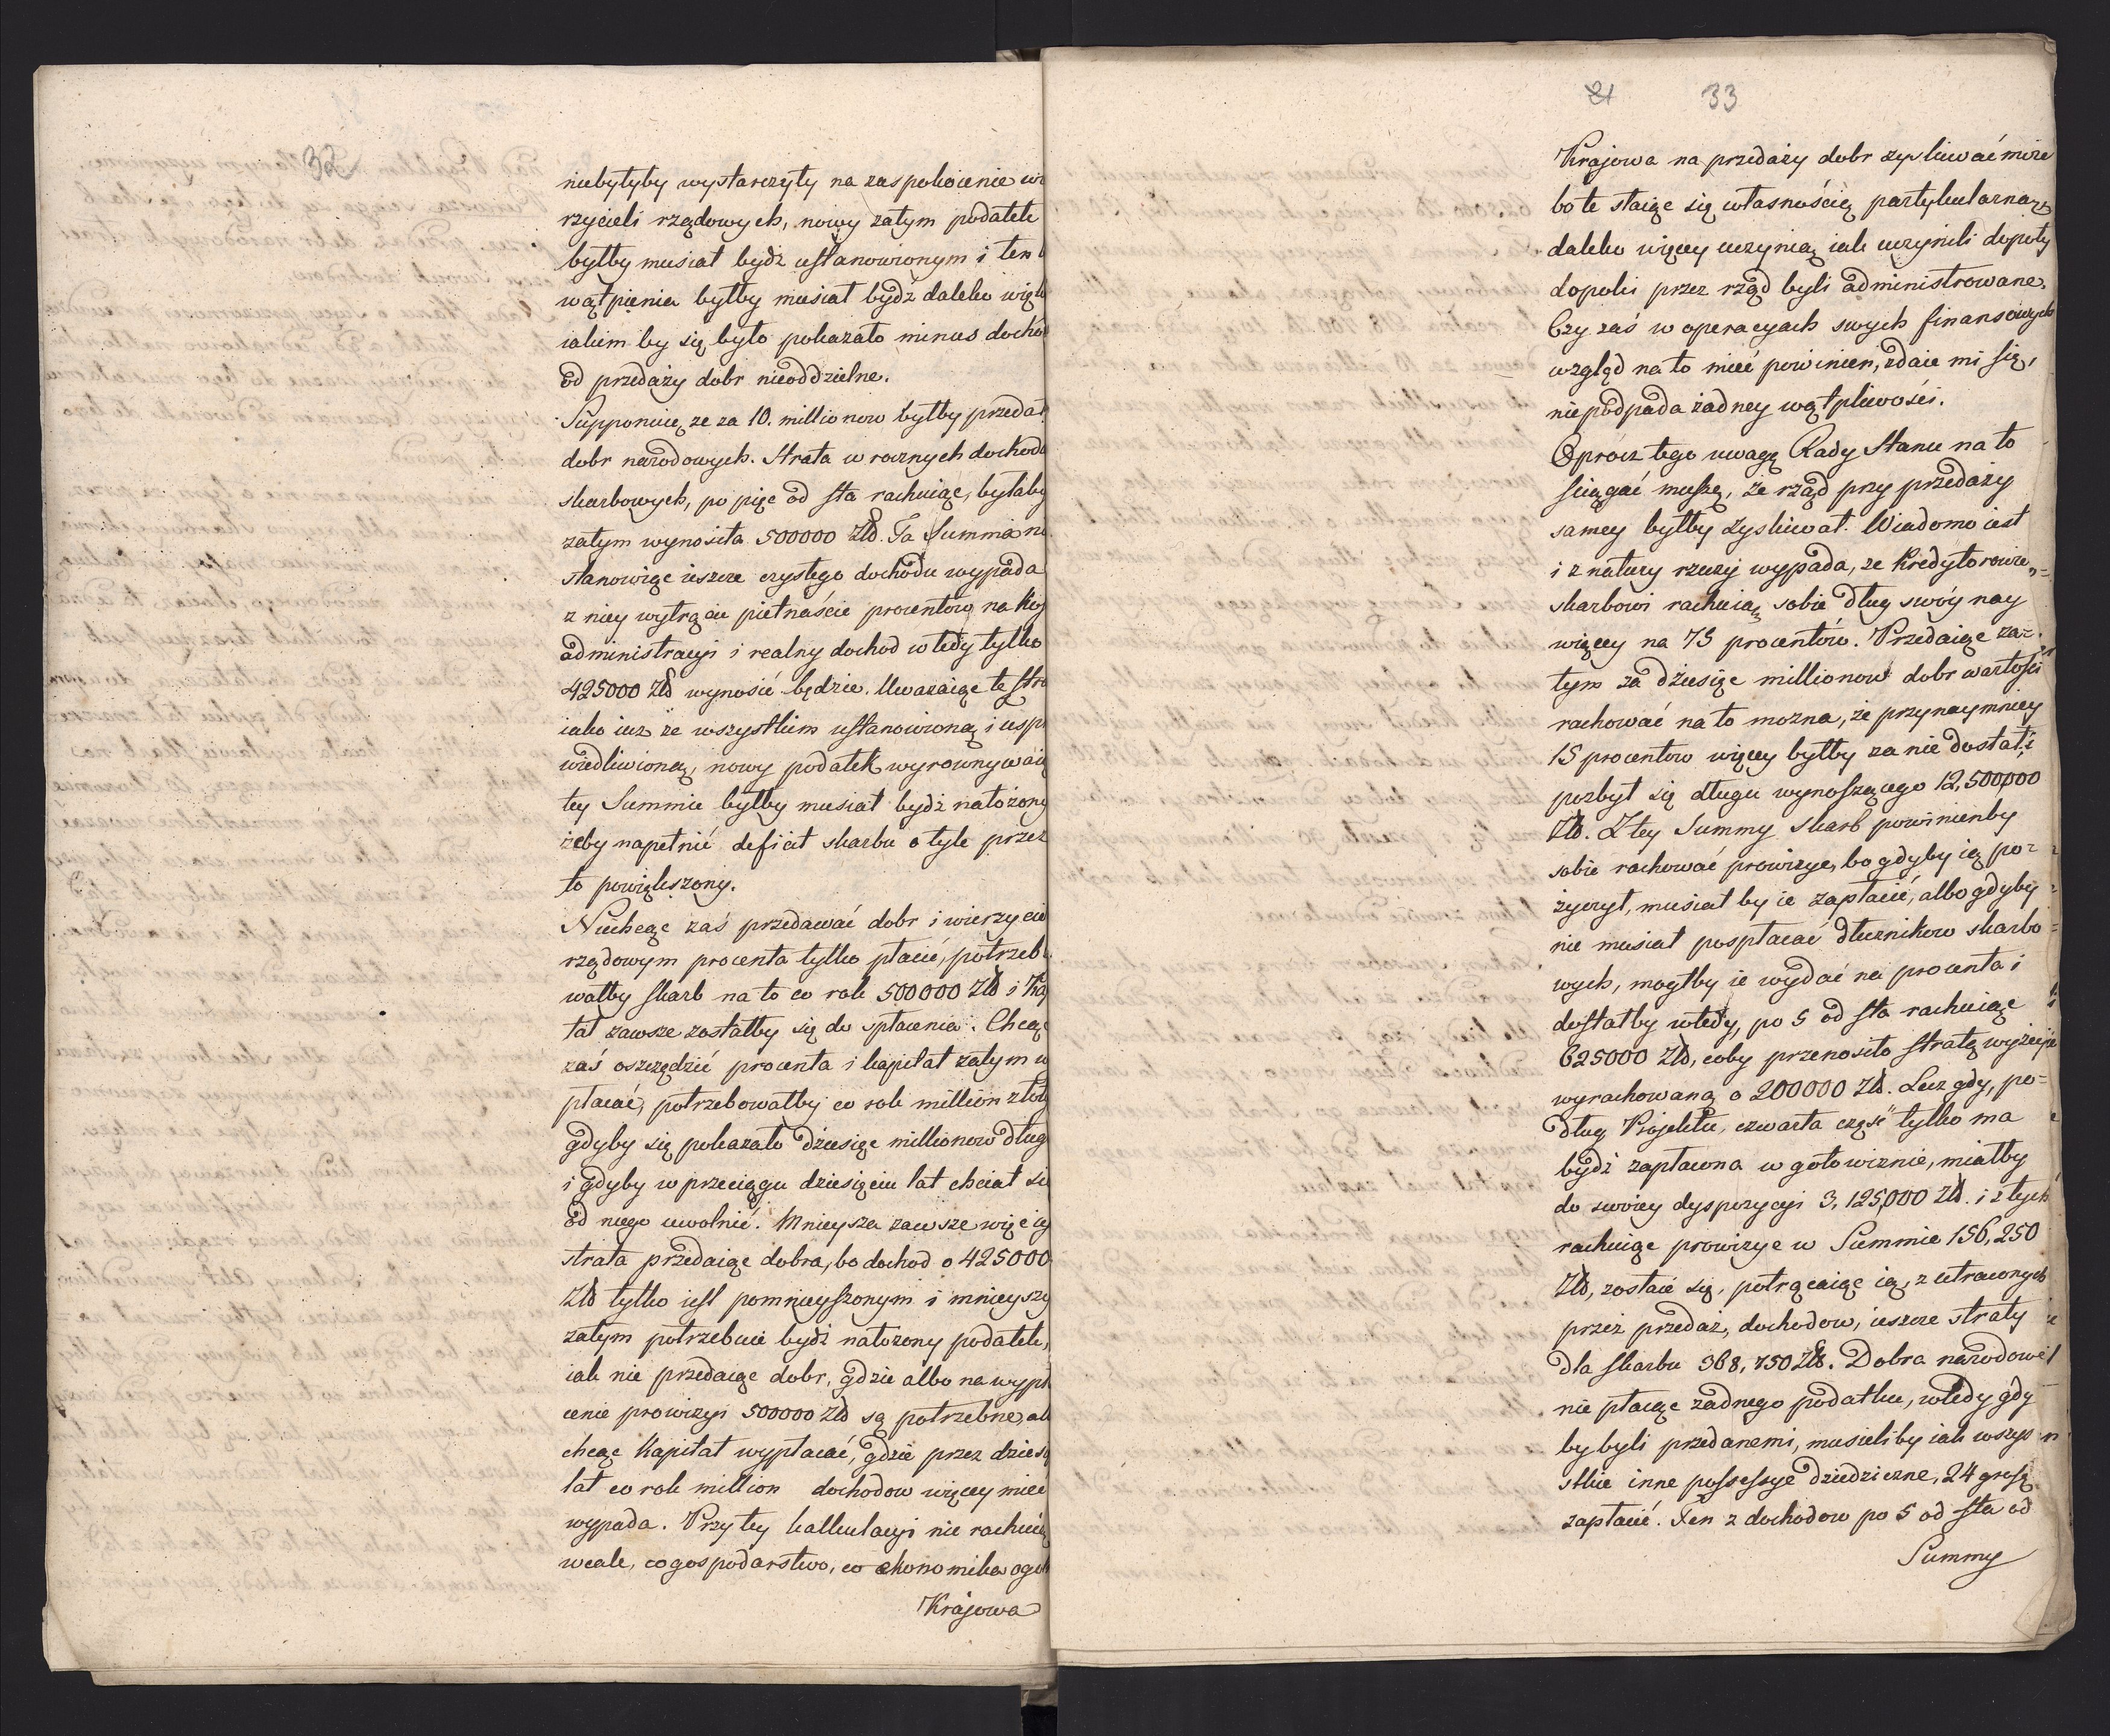 32
niebyłyby wystarczyły na zaspokoienie wi
rzycieli rządowych, nowy zatym podatek
byłby musiał bydź ustanowionym i ten b
wątpienia byłby musiał bydź daleko więk
iakiem by się było pokazało minus dochó
od przedaży dobr nieoddzielne.
Supponuię ze za 10. millionow byłby przedał
dobr narodowych. Strata w rocznych dochoda
skarbowych, po pięć od sta rachuiąc, byłaby
zatym wynosiła 500000 Złł. Ta Summa ni
stanowiąc ieszcze czystego dochodu wypada
z niey wytrącić pietnaście procentow na kos
administracyi i realny dochod wtedy tylko
425000 Złł wynosić będzie. Uwazaiąc tę stra
iako iuz ze wszystkim ustanowioną i uspr
wiedliwioną, nowy podatek wyrownywaią
tey Summie byłby musiał bydź nałożony
żeby napełnić deficit skarbu o tyle przez
to powiększony.
Niechcąc zaś przedawać dobr i wierzycie
rządowym procenta tylko płacić, potrzebo
wałby skarb na to co rok 500000 Złł i Kap
tał zawsze zostałby się do spłacenia. Chcąc
zaś oszczędzić procenta i kapitał zatym w
płacać, potrzebowałby co rok million złoty
gdyby się pokazało dziesięć millionow dług
i gdyby w przeciągu dziesięciu lat chciał si
od niego uwolnić. Mnieysza zawsze więc iest
strata przedaiąc dobra, bo dochod o 425000
Złł tylko iest pomnieyszonym i mnieyszy
zatym potrzebuie bydź nałozony podatek,
iak nie przedaiąc dobr, gdzie albo na wypł
cenie prowizyi 500000 Złł są potrzebne, alb
chcąc Kapitał wypłacać, gdzie przez dziesię
lat co rok million dochodow więcey mieć
wypada. Przy tey kalkulacyi nie rachuię
wcale, co gospodarstwo, co ekonomika ogul
Krajowa
21 33
Krajowa na przedaży dobr zyskiwać może
bo te staiąc się własnością partykularną
daleko więcey uczynią iak uczynili dopoty
dopoki przez rząd byli administrowane.
Czy zaś w operacyach swych finansowych
wzgląd na to mieć powinien, zdaie mi się,
nie podpada żadney wątpliwości.
Oprocz tego uwagę Rady Stanu na to
sciągać muszę, że rząd przy przedaży
samey byłby zyskiwał. Wiadomo iest
i z natury rzeczy wypada, ze Kredytorowie
skarbowi rachuią sobie dług swóy nay
więcey na 75 procentów. Przedaiąc za=
tym za dziesięć millionow dobr wartości
rachować na to mozna, że przynaymniey
15 procentow więcey byłby za nie dostał i
pozbył się długu wynoszącego 12,500,000
Złł. Z tey Summy Skarb powinienby
sobie rachować prowizye, bo gdyby ią po=
życzył, musiał by ie zapłacić, albo gdyby
nie musiał pospłacać dłuznikow skarbo
wych, mogłby ie wydać na procenta i
dostałby wtedy, po 5 od sta rachuiąc
625000 Złł, coby przenosiło stratę wyżeiy
wyrachowaną o 200000 Złł. Lecz gdy, po=
dług Projektu, czwarta część tylko ma
bydź zapłacona w gotowiznie, miałby
do swoiey dyspozycyi 3,125,000 Złł. i z tych
rachuiąc prowizye w Summie 156,250
Złł, zostaie się, potrącaiąc ią, z utraconych
przez przedaż, dochodow, ieszcze straty
dla skarbu 368,750 Złł. Dobra narodowe
nie płacąc zadnego podatku, wtedy gdy
by byli przedanemi, musieliby iak wszys
stkie inne possessye dziedziczne, 24 grosz
zapłacić. Ten z dochodow po 5 od sta od
Summy